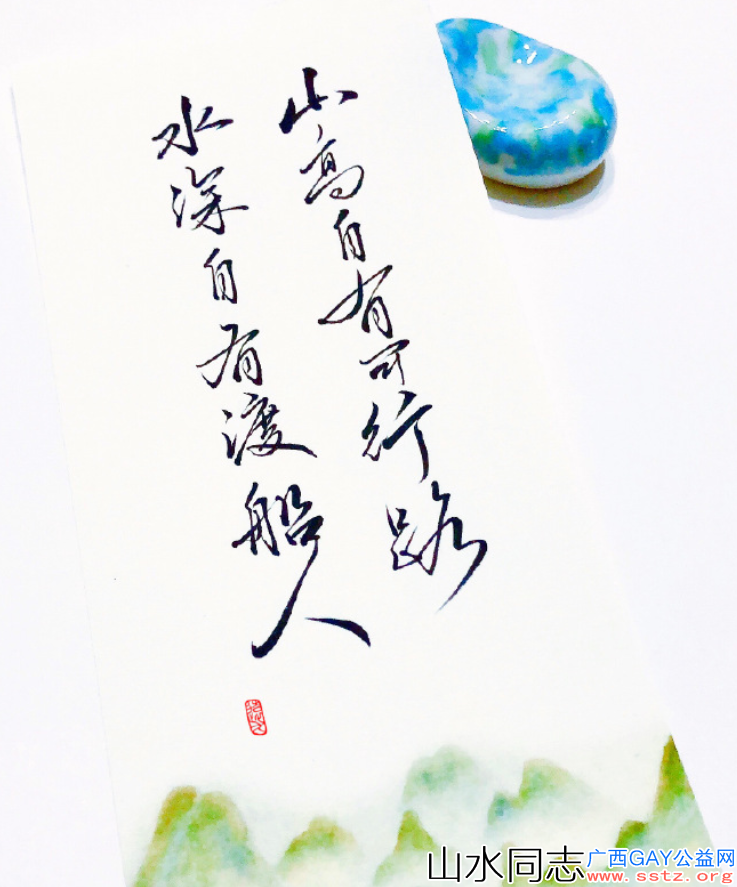 山高自有可行路
水深自有渡船人
山水同志
广西GAY公益网
www.sstz.org